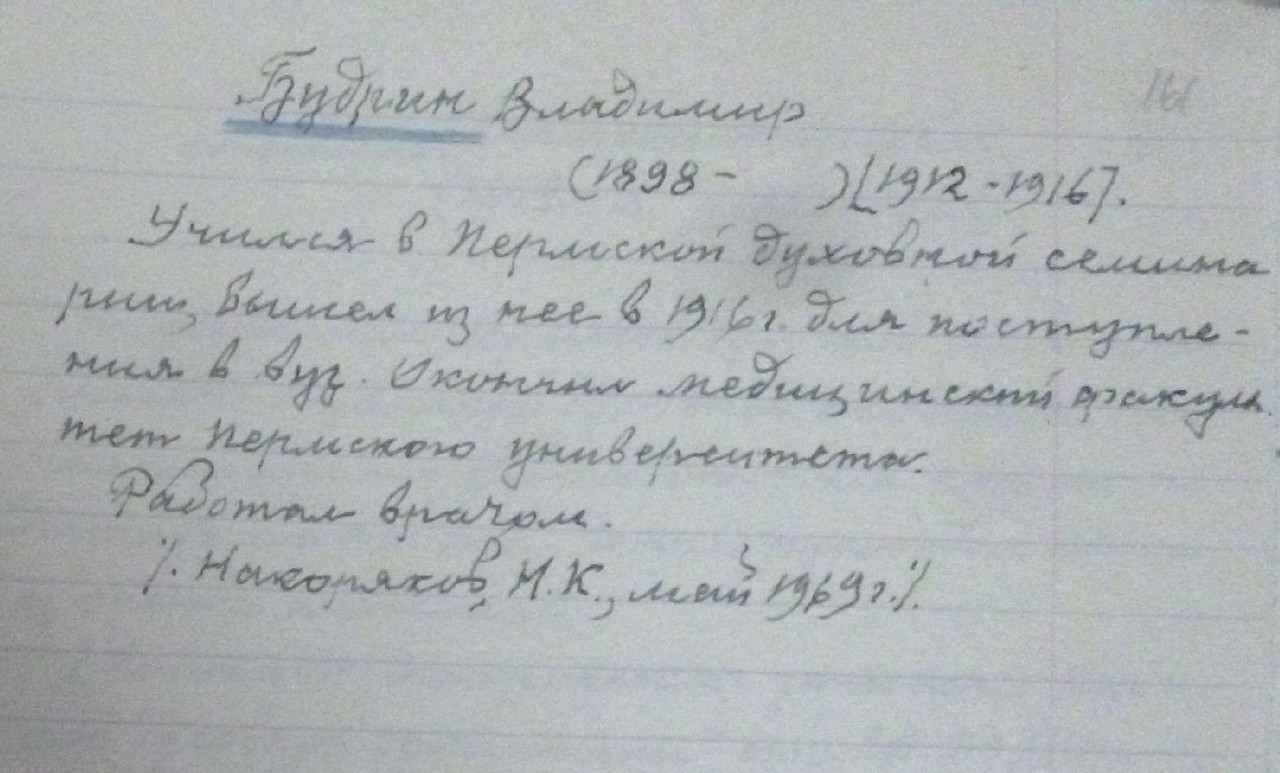 161
Будрин Владимир
(1898 - )[1912 - 1916].
Учился в Пермской духовной семина
рии, вышел из нее в 1916 г. для поступле-
ния в вуз. Окончил медицинский факуль
тет Пермского университета.
Работал врачом.
/. Накоряков, Н.К., май 1969 г./.